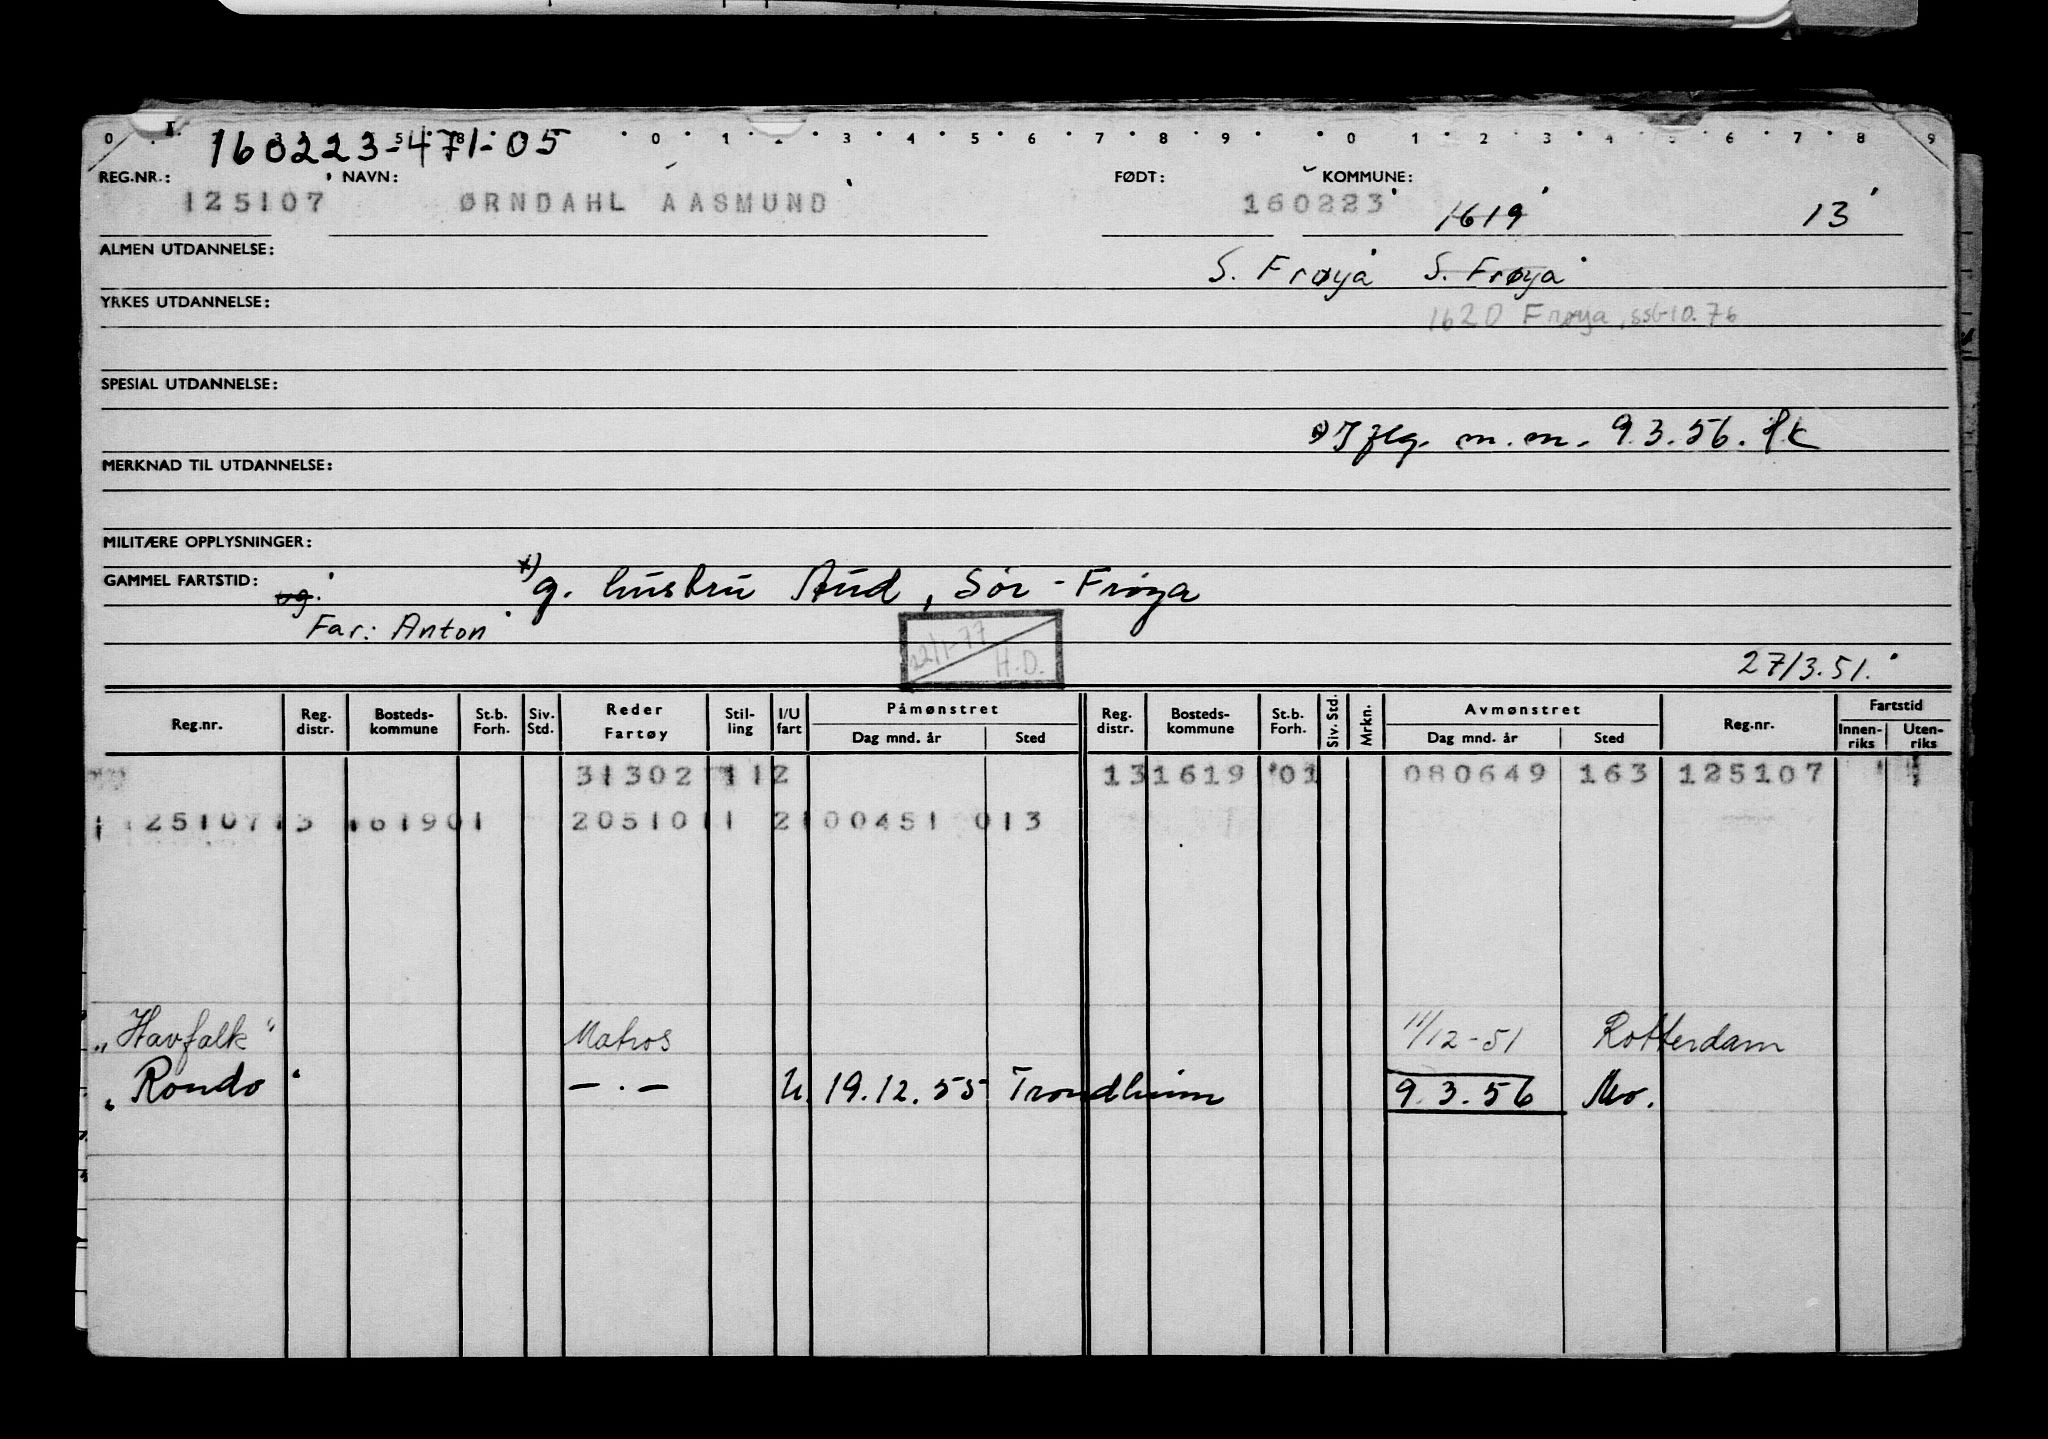 0 1. 160223-471-05 0 1 2 3 4 5 6 7 8 9 0 1 2 3 4 5 6 7 8 9
REG.NR.: NAVN: FØDT: KOMMUNE:
125107 ØRNDAHL AASMUND 160223 1619 13
ALMEN UTDANNELSE:
S. Frøya S. Frøya
YRKES UTDANNELSE:
1620 Frøya, ssb-10.76
SPESIAL UTDANNELSE:
x) Iflg. m.m. 9.3.56.
MERKNAD TIL UTDANNELSE:
MILITÆRE OPPLYSNINGER:
GAMMEL FARTSTID: ug. x) g. hustru Aud, Sør-Frøya
Far: Anton
22/1-77 H.D.
27/3.51.
Reg.nr. Reg. distr. Bosteds-kommune St.b. Forh. Siv. Std. Reder Fartøy Stil-ling I/U fart Påmønstret Dag mnd. år Sted Reg. distr. Bosteds-kommune St.b. Forh. Siv. Std. Mrkn. Avmønstret Dag mnd. år Sted Reg.nr. Fartstid Innen-riks Uten-riks
31302 112 13 1619 01 080649 163 125107
125107 13 161901 205101 1 2 100451 013
"Havfalk" Matros 11/12-51 Rotterdam
"Rondo" -.- U. 19.12.55 Trondheim 9.3.56 Mo.